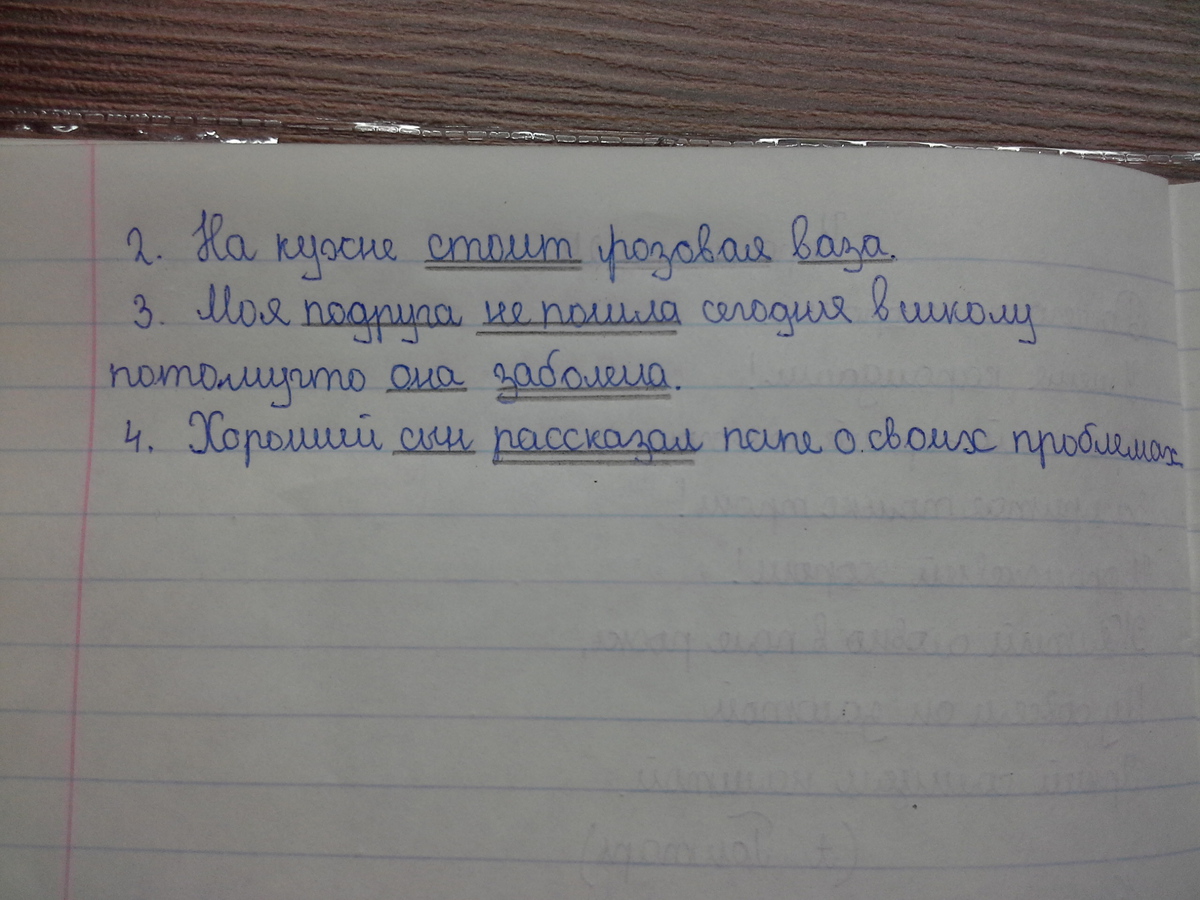 2. На кухне стоит розовая ваза.
3. Моя подруга не пошла сегодня в школу
потомучто она заболела.
4. Хороший сын рассказал папе о своих проблемах